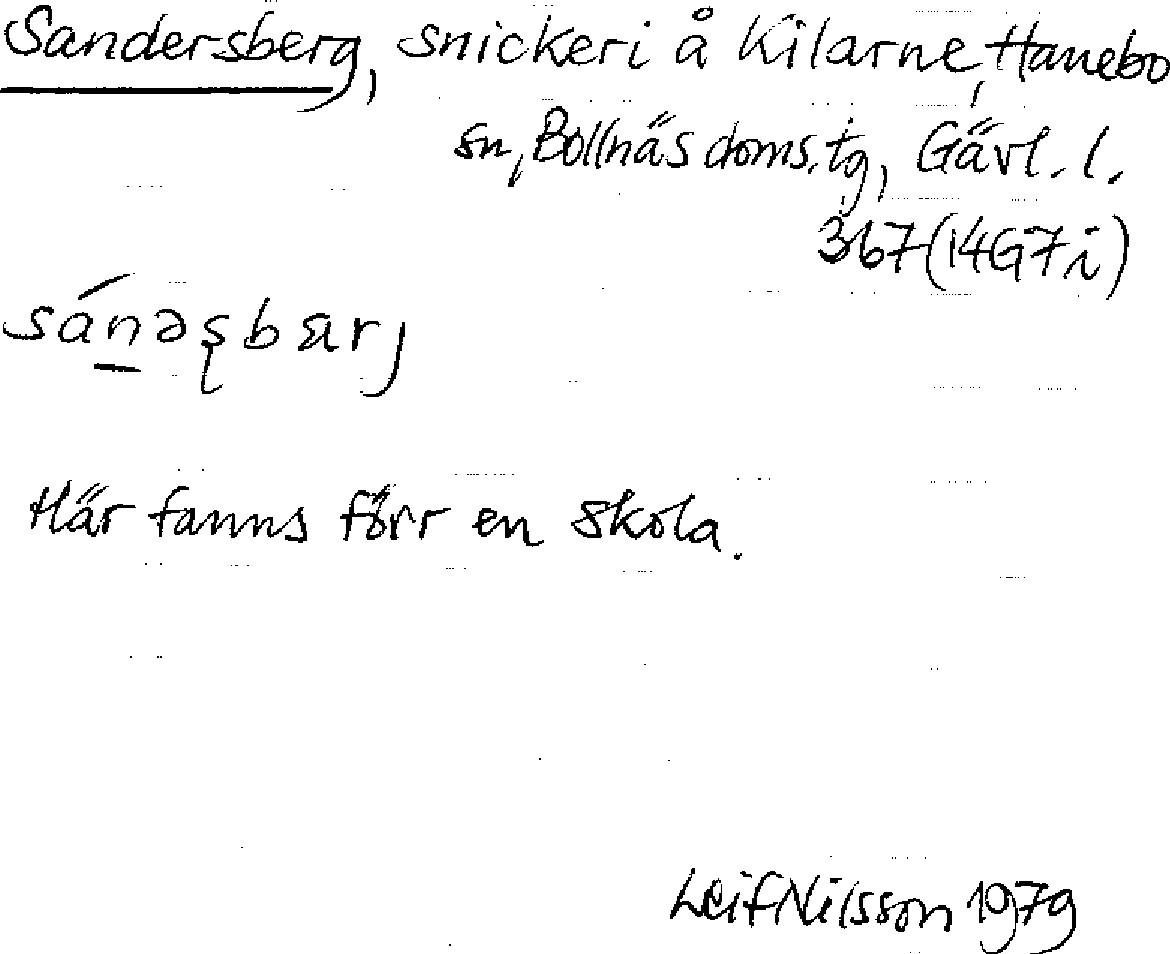 Sandersberg, snickeri å Kilarne, Hanebo
sn, Bollnäs doms.tg, Gävl. l.
367 (14G7i)
sánəʂbærj
Här fanns förr en skola.
Leif Nilsson 1979